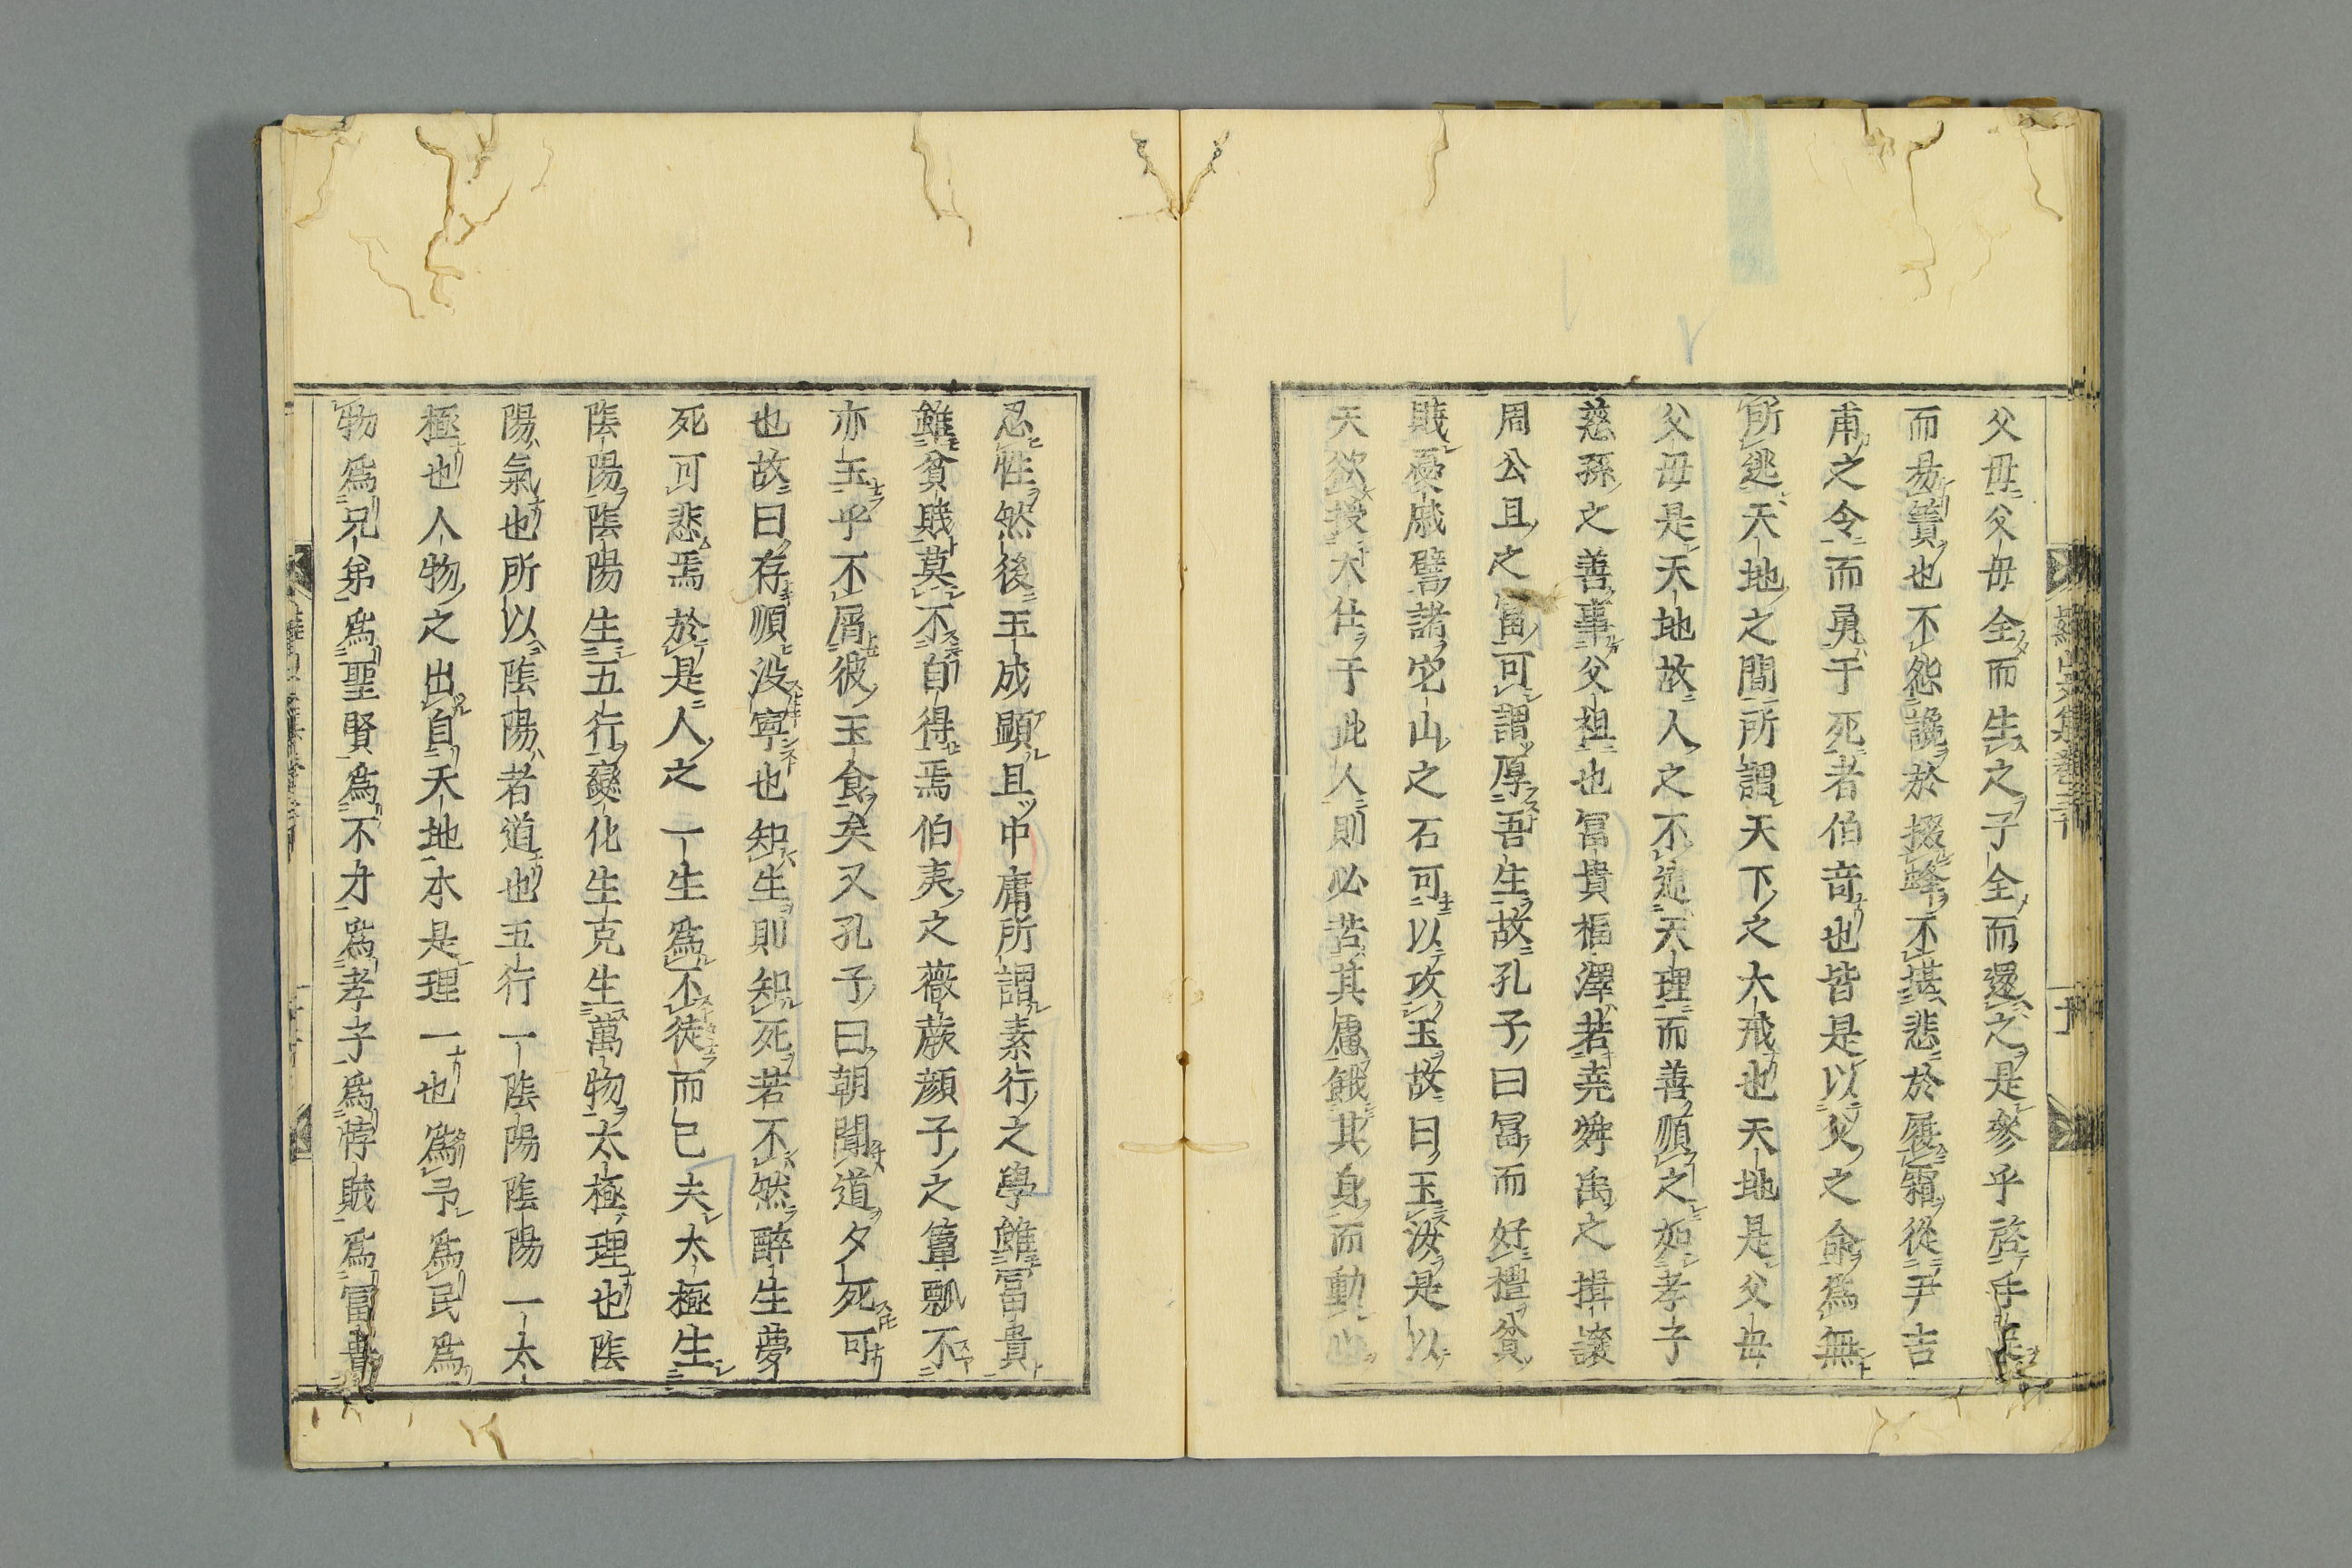 父母父母全而生之子全而還之是參乎啓手足
而易簀也不怨讒於掇蜂不堪悲於履霜從尹吉
甫之令而勇于死者伯奇也皆是以父之命爲無
所逃天地之間所謂天下之大戒也天地是父母
父母是天地故人之不違天理而善順之如孝子
慈孫之善事父祖也冨貴福澤若尭舜禹之揖讓
周公且之冨可謂厚吾生故孔子曰冨而好禮貧
賎憂戚譬諸它山之石可以攻玉故曰玉汝是以
天欲授大任于此人則必苦其慮餓其身而動心
忍性然後玉成顕且中庸所謂素行之學雖冨貴
雖貧賎莫不自得焉伯夷之薇蕨顔子之簞瓢不
亦玉乎不屑彼玉食矣又孔子曰朝聞道夕死可
也故曰存順没寧也知生則知死若不然醉生夢
死可悲焉於是人之一生爲不徒而已夫太極生
陰陽陰陽生五行變化生克生萬物太極理也陰
陽氣也所以陰陽者道也五行一陰陽陰陽一太
極也人物之出自天地本是理一也爲予爲民爲
物爲兄弟爲聖賢爲不才爲孝子爲悖賊爲冨貴